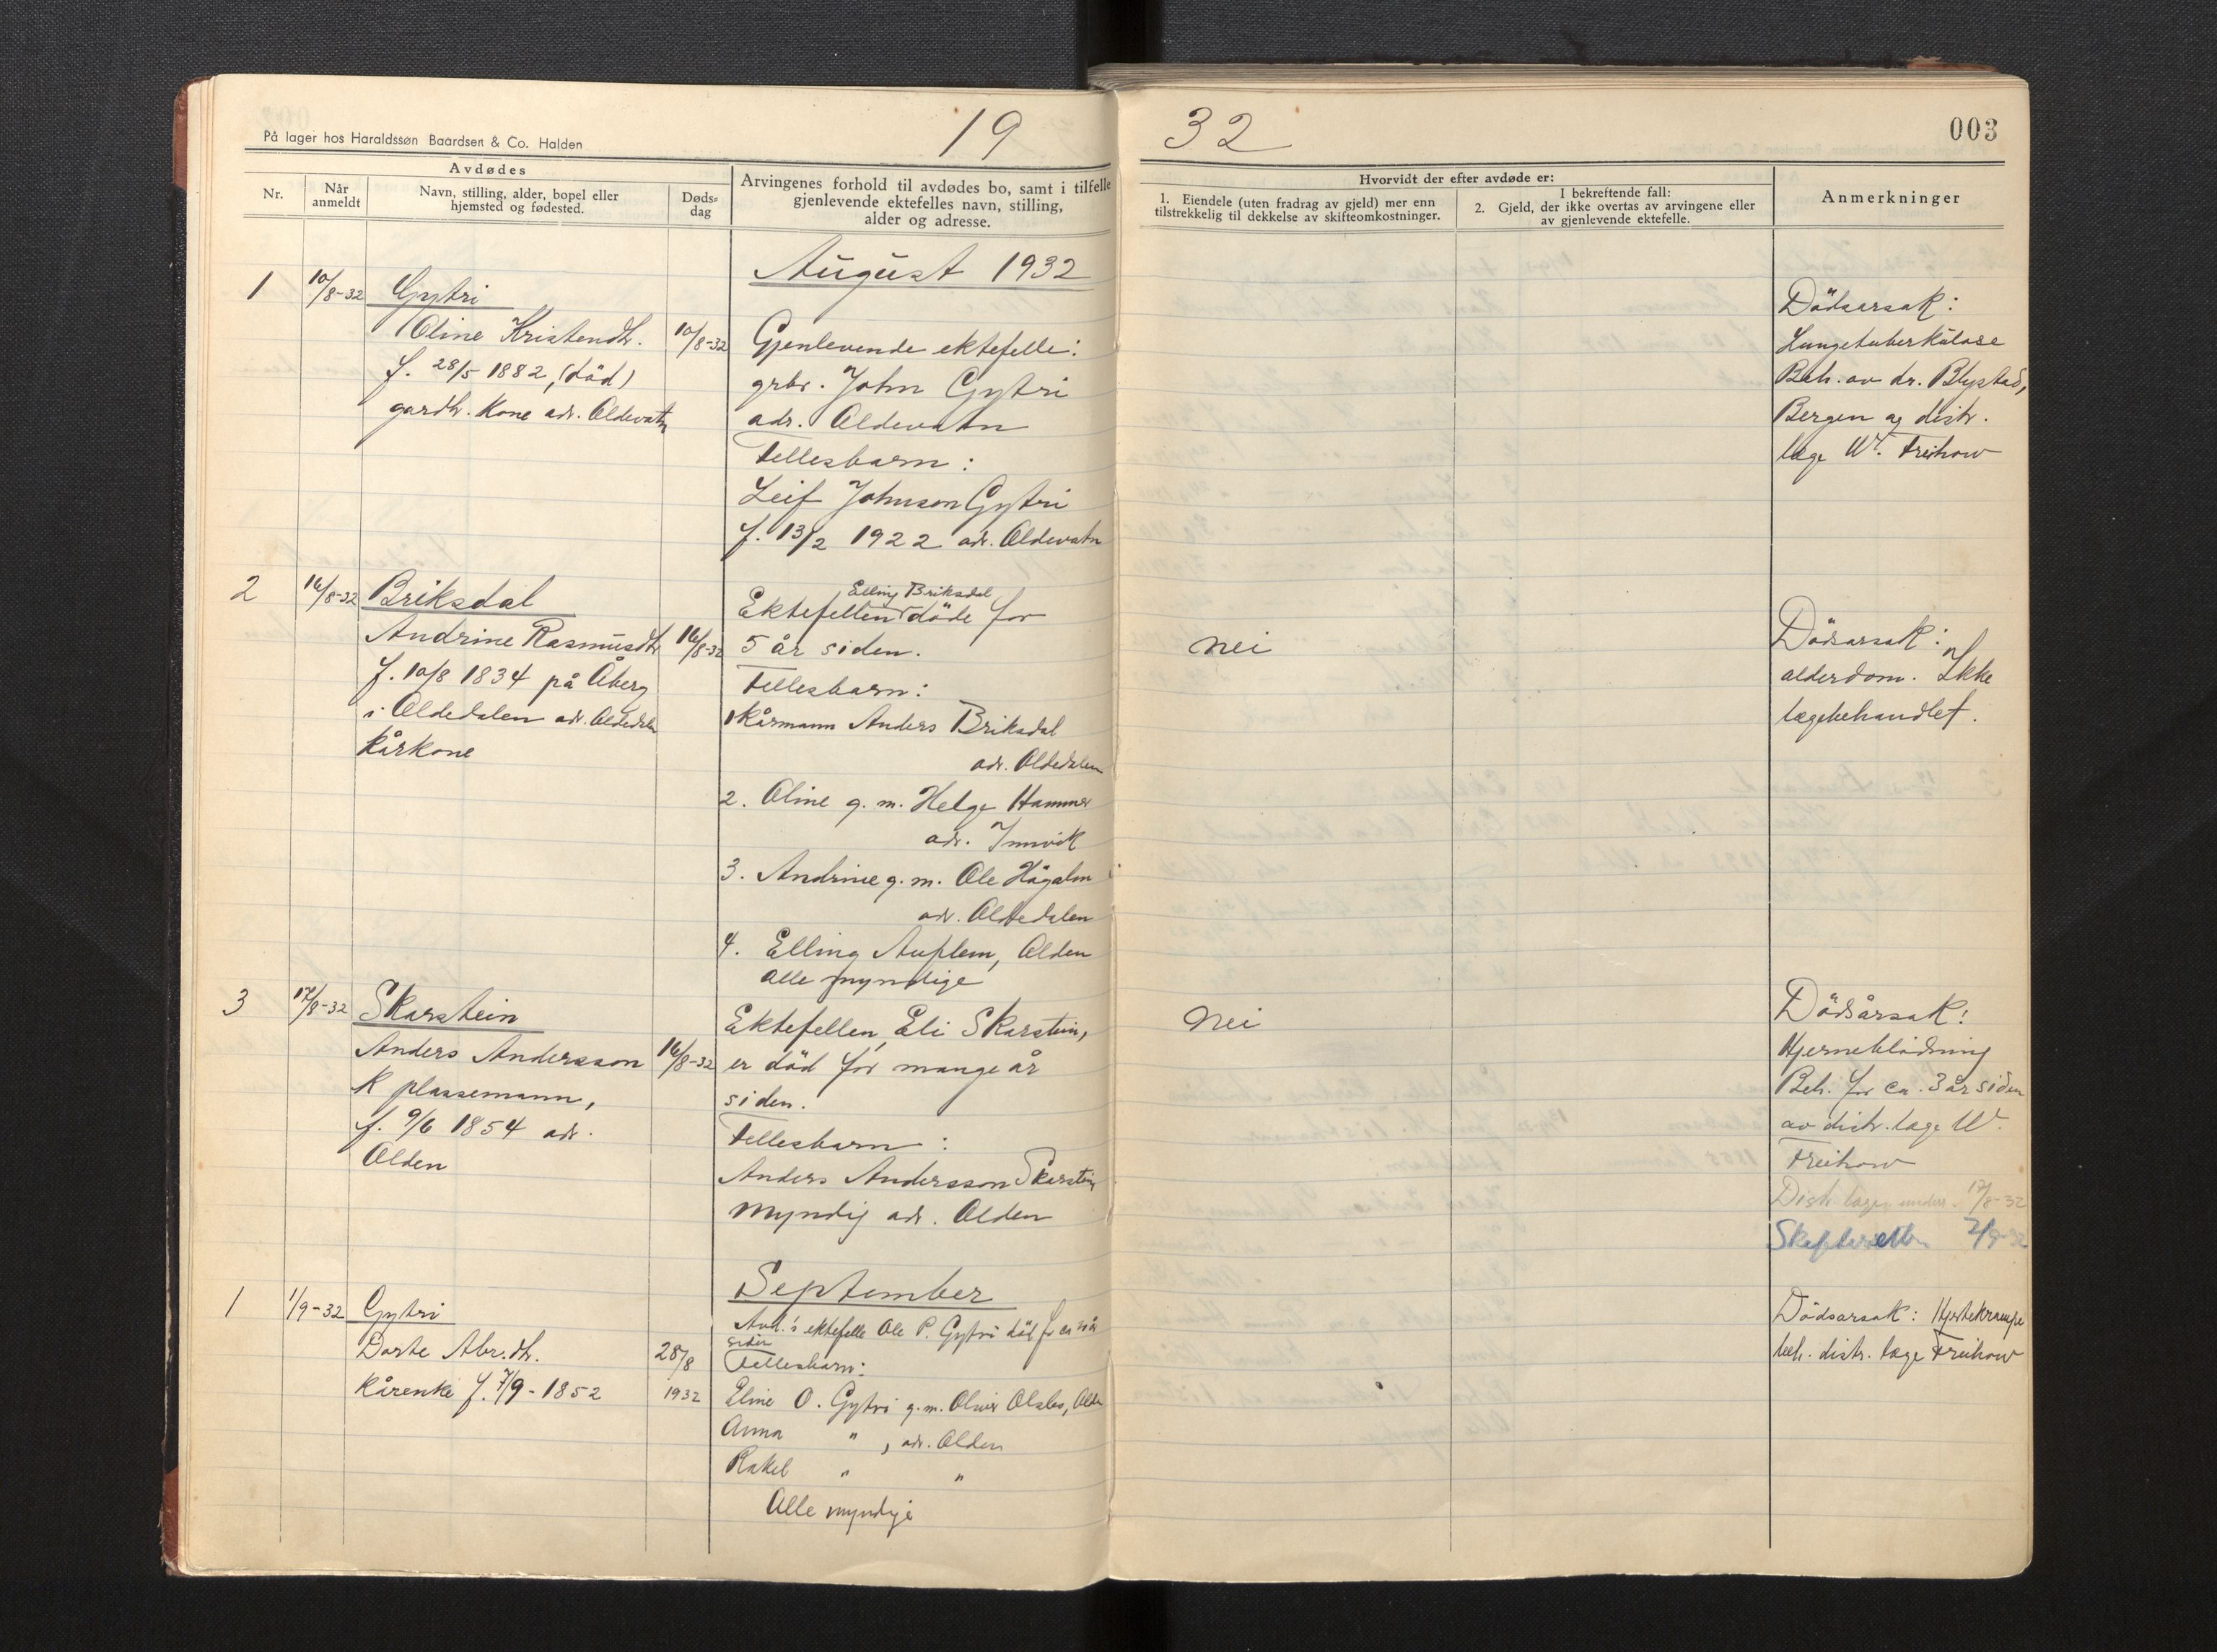 19
32
003
På lager hos Haraldssøn Baardsen & Co. Halden
Avdødes
Nr.
Når anmeldt
Navn, stilling, alder, bopel eller hjemsted og fødested.
Døds-dag
Arvingenes forhold til avdødes bo, samt i tilfelle
gjenlevende ektefelles navn, stilling,
alder og adresse.
Hvorvidt der efter avdøde er:
1. Eiendele (uten fradrag av gjeld) mer enn
tilstrekkelig til dekkelse av skifteomkostninger.
I bekreftende fall:
2. Gjeld, der ikke overtas av arvingene eller
av gjenlevende ektefelle.
Anmerkninger
August 1932
1 10/8-32 Gytri
Oline Kristendtr. 10/8-32
f. 28/5 1882, (död)
gardbr. kone adr. Oldevatn
Gjenlevende ektefelle:
grbr. John Gytri
adr. Oldevatn
Fellesbarn:
Leif Johnson Gytri
f. 13/2 1922 adr. Oldevatn
Dödsarsak:
Lungetuberkulose
Beh. av dr. Blystad,
Bergen og distr.
læge W. Freihow
2 16/8-32 Briksdal
Andrine Rasmusdtr 16/8-32
f. 10/8 1834 på Åberg
i Oldedalen adr. Oldedalen
kårkone
Elling Briksdal
Ektefellen döde for
5 år siden.
Fellesbarn:
1 Kårmann Anders Briksdal
adr. Oldedalen
2. Oline g. m. Helge Hammer
adr. Innvik
3. Andrine g. m. Ole Högalm
adr. Oldedalen
4. Elling Auflem, Olden
alle myndige
nei
Dödsarsak:
alderdom. Ikke
lægebehandlet.
3 17/8-32 Skarstein
Anders Andersson 16/8-32
K plassemann,
f. 9/6 1854 adr.
Olden
Ektefellen, Eli Skarstein,
er död for mange år
siden.
Fellesbarn:
Anders Andersson Skarstein
myndig adr. Olden
nei
Dödsårsak:
Hjerneblödning
Beh. for ca. 3 år siden
av distr. læge W.
Freihow
Distr. lægen under. 17/8-32
Skifteretten 2/9-32
September
1 1/9-32 Gytri
Dorte Abr.dtr. 28/8
kårenke f. 7/9-1852 1932
Avd.'s ektefelle Ole P. Gytri död for en år
siden
Fellesbarn:
Eline O. Gytri g.m. Oliver Olsbo, Olden
Anna " , adr. Olden
Rakel " "
Alle myndige
Dödsarsak: Hjertekrampe
beh. distr. læge Freihow